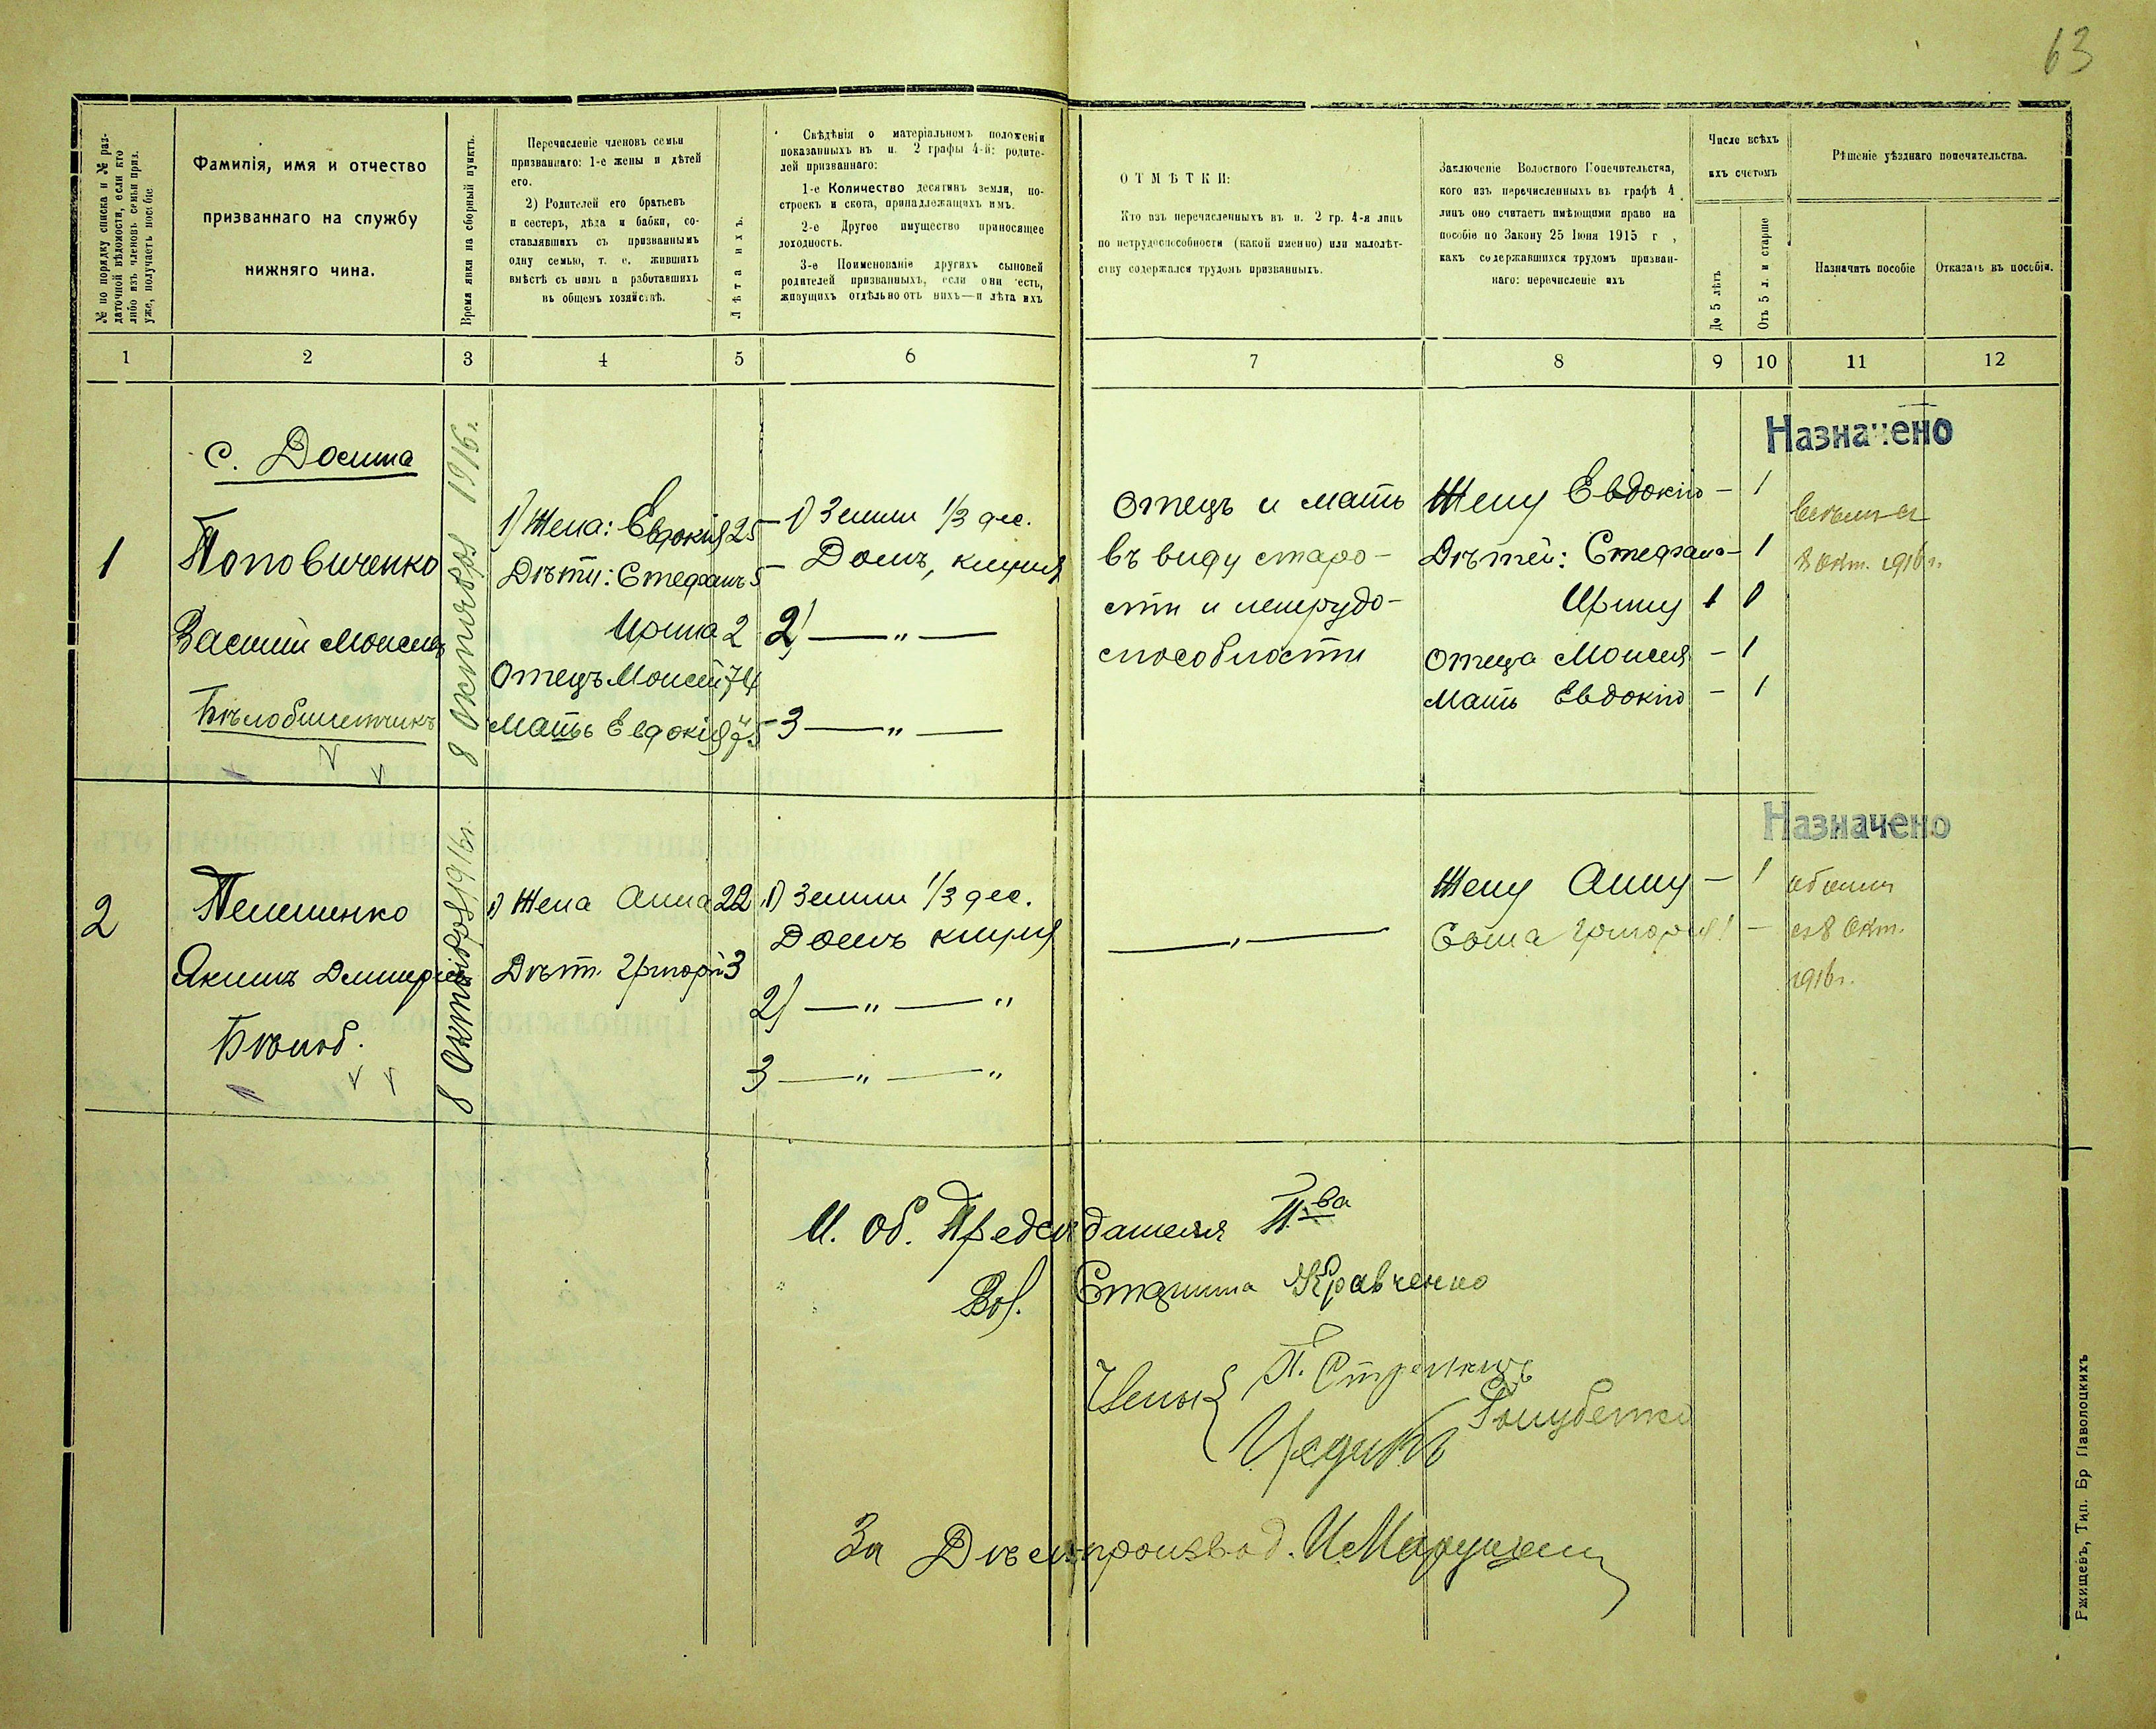 63
№ по порядку списка и № раз-
даточной вѣдомости, если кто
либо изъ членовъ семьи приз.
уже, получаетъ пособіе
Фамилія, имя и отчество
призваннаго на службу
нижняго чина.
Время явки на сборный пунктъ.
Перечисленіе членовъ семьи
призваннаго: 1-е жены и дѣтей
его.
2) Родителей его братьевъ
и сестеръ, дѣда и бабки, со-
ставлявшихъ съ призваннымъ
одну семью, т. е. жившихъ
вмѣстѣ съ нимъ и работавшихъ
въ общемъ хозяйствѣ.
Лѣта ихъ.
Свѣдѣнія о матеріальномъ положеніи
показанныхъ въ п. 2 графы 4-й: родите-
лей призваннаго:
1-е Количество десятинъ земли, по-
строекъ и скота, принадлежащихъ имъ.
2-е Другое имущество приносящее
доходность.
3-е Поименованіе другихъ сыновей
родителей призванныхъ, если они есть,
живущихъ отдѣльно отъ нихъ—и лѣта ихъ
ОТМѢТКИ:
Кто изъ перечисленныхъ въ п. 2 гр. 4-я лицъ
по нетрудоспособности (какой именно) или малолѣт-
ству содержался трудомъ призванныхъ.
Заключеніе Волостного Попечительства,
кого изъ перечисленныхъ въ графѣ 4
лицъ оно считаетъ имѣющими право на
пособіе по Закону 25 Іюня 1915 г,
какъ содержавшихся трудомъ призван-
наго: перечисленіе ихъ
Число всѣхъ
ихъ счетомъ
До 5 лѣтъ
Отъ 5 л. и старше
Рѣшеніе уѣзднаго попечительства.
Назначить пособіе
Отказать въ пособіи.
1 2 3 4 5 6 7 8 9 10 11 12
с. Досина
Назначено
1
Поповиченко
Василій Моисеевъ
Бѣлобилетникъ
8 Октября 1916 г.
1) Жена: Евдокія 25
Дѣти: Стефанъ 5
Ирина 2
Отецъ Моисей 74
Мать Евдокія 75
1) Земли 1/3 дес.
Домъ, клуня
2) — „ —
3 — „ —
Отецъ и мать
въ виду старо-
сти и нетрудо-
способности
Жену Евдокію - 1
Дѣтей: Стефана - 1
Ирину 1
Отца Моисея - 1
Мать Евдокію - 1
8 Окт. 1916 г.
Назначено
2
Пелешенко
Акимъ Дмитріевъ
Бѣлоб.
8 Октября 1916 г.
1) Жена Анна 22
Дѣт. Григорій 3
1) Земли 1/3 дес.
Домъ клуня
2) — „ — „
3 — „ — „
— „ —
Жену Анну - 1
Сына Григорія 1 -
обоимъ
съ 8 Окт.
1916 г.
И. об. Предсѣдателя П-ва
Вол. Старшина Кравченко
Члены {
За Дѣлопроизвод.
Ржищевъ, Тип. Бр Паволоцкихъ